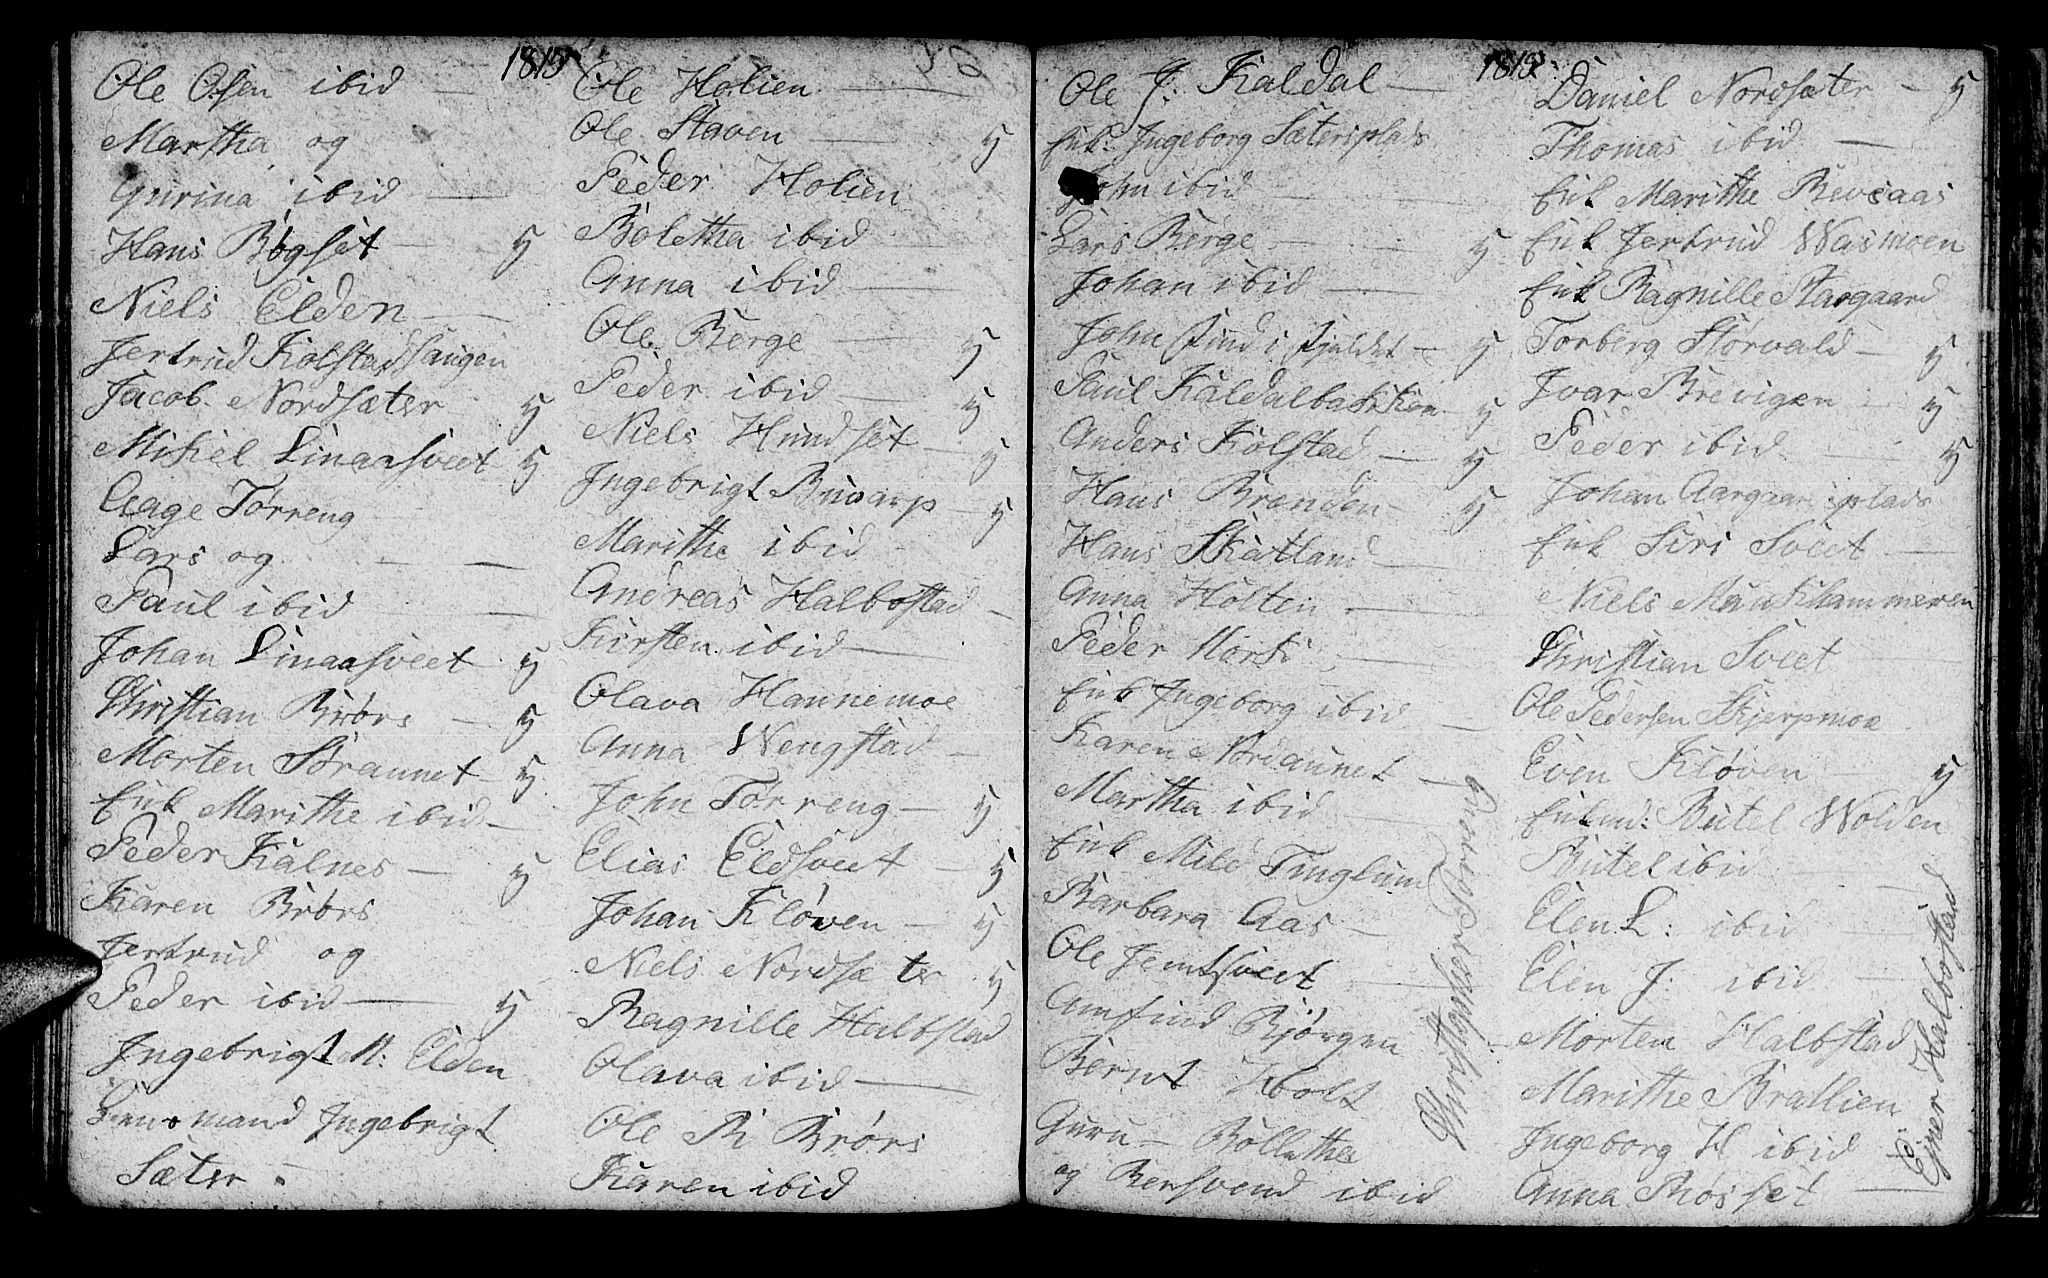 1815
Ole Olsen ibid
Martha og
Gurina ibid
Hans Bøgset
Niels Elden
Jertrud Kolstadhaugen
Jacob Nordsæter
Mikel Linaasveet
Aage Tørreng
Lars og
Paul ibid
Johan Linaasveet
Christian Brørs
Morten Søraunet
Enk Marithe ibid
Peder Kalnes
Karen Brørs
Jertrud og
Peder ibid
Ingebrigt M: Elden
mand Ingebrigt
Sæter
Ole Holien
Ole Staven
Peder Holien
Boletha ibid
Anna ibid
Ole Berge
Peder ibid
Niels Hundset
Ingebrigt Buvarp
Marithe ibid
Andreas Halbostad
Kirsten ibid
Olava Hannemoe
Anna Wengstad
John Tørreng
Elias Eldsveet
Johan Kløven
Niels Nordsæter
Ragnille Halbstad
Olava ibid
Ole P Brørs
Karen ibid
1815
Ole J: Kaldal
Enk: Ingeborg Sætersplads
John ibid
Lars Berge
Johan ibid
John Find i Fjeldet
Paul Kaldalbakken
Anders Kolstad
Hans Brenden
Hans Skatland
Anna Holten
Peder Mork
Enk Ingeborg ibid
Karen Nordaunet
Martha ibid
Enk Mild Tinglum
Barbara Aas
Ole Jemtsveet
Amfind Bjørgen
Bernt Holt
Guru Bolletha
og Bersvend ibid
Daniel Nordsæter
Thomas ibid
Enk Marithe Revsaas
Enk Jertrud Wasmoen
Enk Ragnille Aargaard
Torberg Størvald
Ivar Brevigen
Peder ibid
Johan Aargaardsplads
Enk Siri Sveet
Niels Maukhammeren
Christian Sveet
Ole Pedersen Skjerpmoe
Even Kløven
Enkmd: Botel Wolden
Botel ibid
Elen L: ibid
Elen J: ibid
Morten Halbstad
Marithe Brallien
Ingeborg H ibid
Anna Røsset
Ejner Halbostad